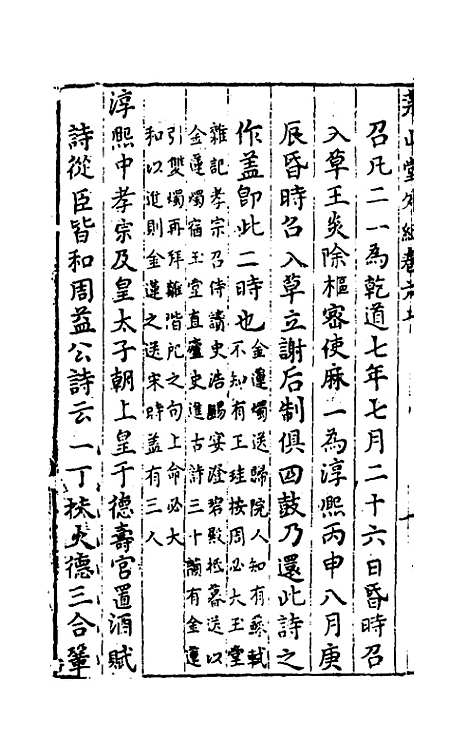 堯山堂外紀卷
召凡二一為乾道七年七月二十六日昏時召
入草王炎除樞密使麻一為淳熙丙申八月庚
辰昏時召入草立謝后制俱四鼓乃還此詩之
作盖即此二時也
金蓮燭送歸院人知有蘇軾
不知有王珪按周必大玉堂
雜記孝宗召侍讀史浩賜宴澄碧殿抵暮送以
金蓮燭宿玉堂直廬史進古詩三十韻有金蓮
引雙燭再拜離階戺之句上命必大
和以進則金蓮之送宋時盖有三人
淳熙中孝宗及皇太子朝上皇于德壽宮置酒賦
詩從臣皆和周益公詩云一丁扶火德三合鞏